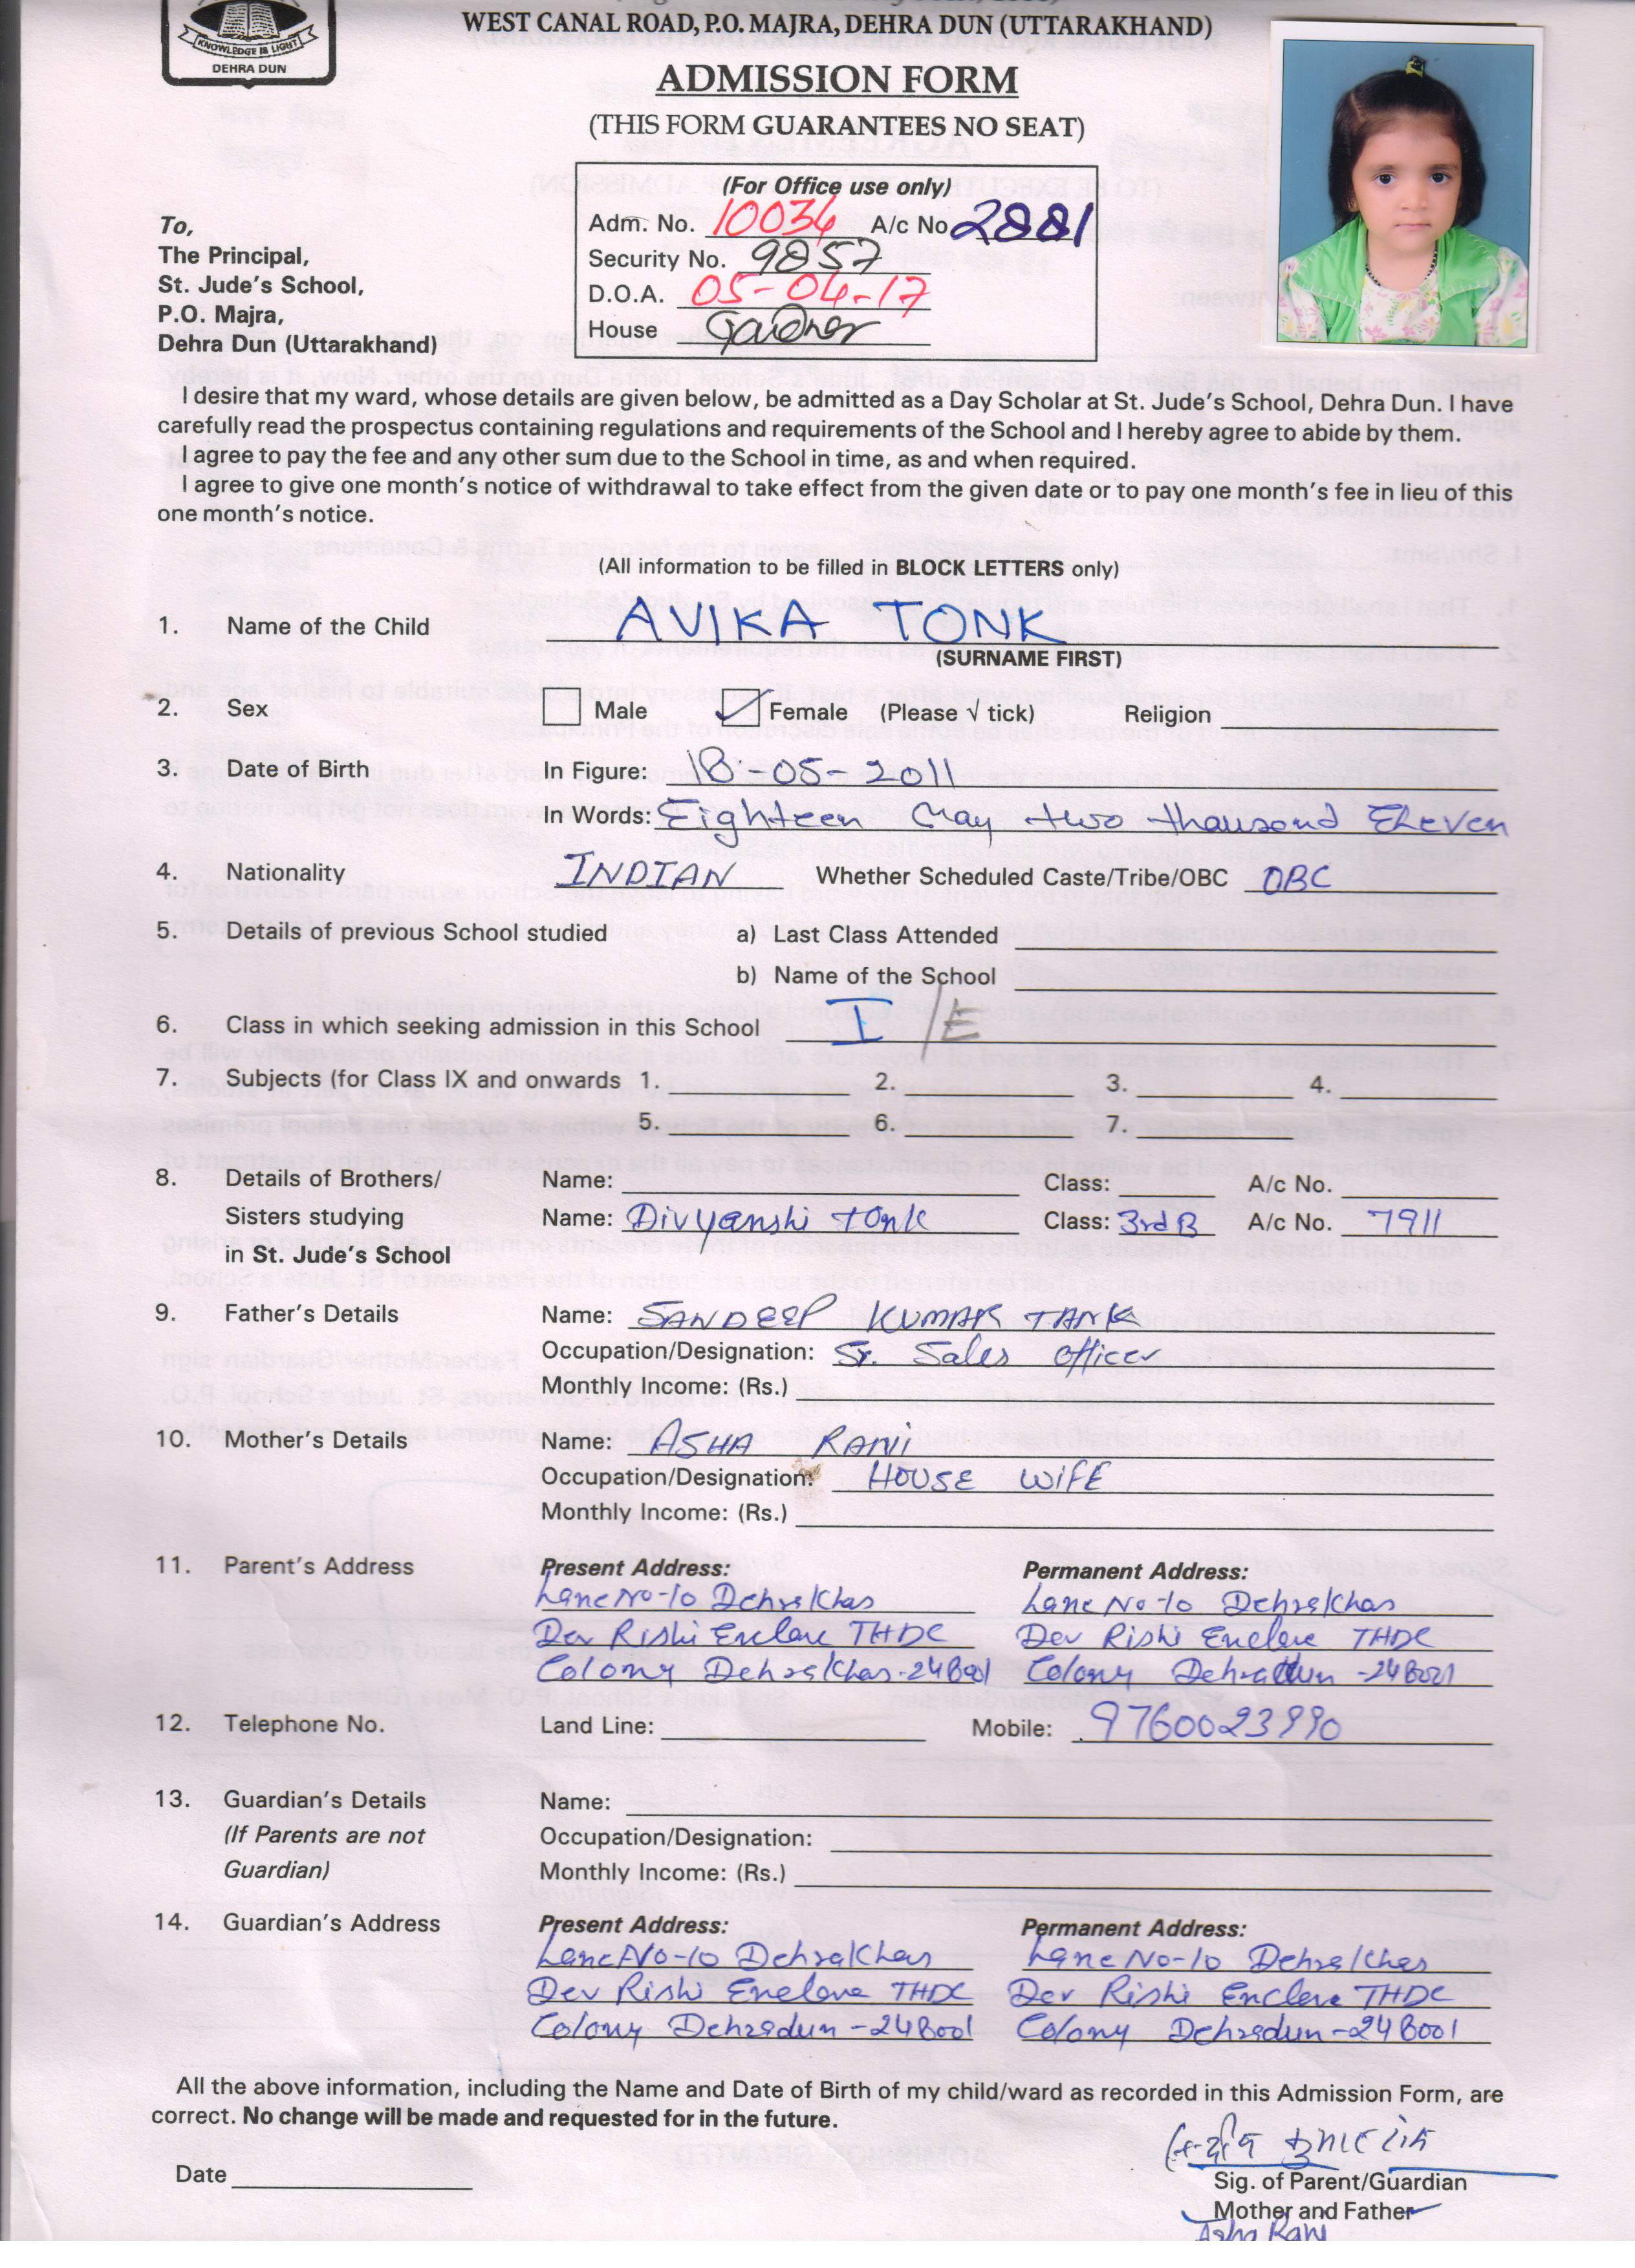 KNOWLEDGE IS LIGHT
DEHRA DUN
WEST CANAL ROAD, P.O. MAJRA, DEHRA DUN (UTTARAKHAND)
ADMISSION FORM
(THIS FORM GUARANTEES NO SEAT)
(For Office use only)
Adm. No. 10034 A/c No 2881
Security No. 9857
D.O.A. 05-04-17
House Gardner
To,
The Principal,
St. Jude's School,
P.O. Majra,
Dehra Dun (Uttarakhand)
I desire that my ward, whose details are given below, be admitted as a Day Scholar at St. Jude's School, Dehra Dun. I have
carefully read the prospectus containing regulations and requirements of the School and I hereby agree to abide by them.
I agree to pay the fee and any other sum due to the School in time, as and when required.
I agree to give one month's notice of withdrawal to take effect from the given date or to pay one month's fee in lieu of this
one month's notice.
(All information to be filled in BLOCK LETTERS only)
1. Name of the Child AVIKA TONK
(SURNAME FIRST)
2. Sex Male Female (Please √ tick) Religion
3. Date of Birth In Figure: 18-05-2011
In Words: Eighteen May two thousand Eleven
4. Nationality INDIAN Whether Scheduled Caste/Tribe/OBC OBC
5. Details of previous School studied a) Last Class Attended
b) Name of the School
6. Class in which seeking admission in this School I /E
7. Subjects (for Class IX and onwards 1. 2. 3. 4.
5. 6. 7.
8. Details of Brothers/ Name: Class: A/c No.
Sisters studying Name: Divyanshi tonk Class: 3rd B A/c No. 7911
in St. Jude's School
9. Father's Details Name: SANDEEP KUMAR TANK
Occupation/Designation: Sr. Sales officer
Monthly Income: (Rs.)
10. Mother's Details Name: ASHA RANI
Occupation/Designation: HOUSE WIFE
Monthly Income: (Rs.)
11. Parent's Address Present Address: Permanent Address:
Lane No-10 Dehrakhas Lane No-10 Dehrakhas
Dev Rishi Enclave THDC Dev Rishi Enclave THDC
Colony Dehrakhas-248001 Colony Dehradun -248001
12. Telephone No. Land Line: Mobile: 9760023990
13. Guardian's Details Name:
(If Parents are not Occupation/Designation:
Guardian) Monthly Income: (Rs.)
14. Guardian's Address Present Address: Permanent Address:
Lane No-10 Dehrakhas Lane No-10 Dehrakhas
Dev Rishi Enclave THDC Dev Rishi Enclave THDC
Colony Dehradun-248001 Colony Dehradun-248001
All the above information, including the Name and Date of Birth of my child/ward as recorded in this Admission Form, are
correct. No change will be made and requested for in the future.
Date
Sig. of Parent/Guardian
Mother and Father
Asha Rani